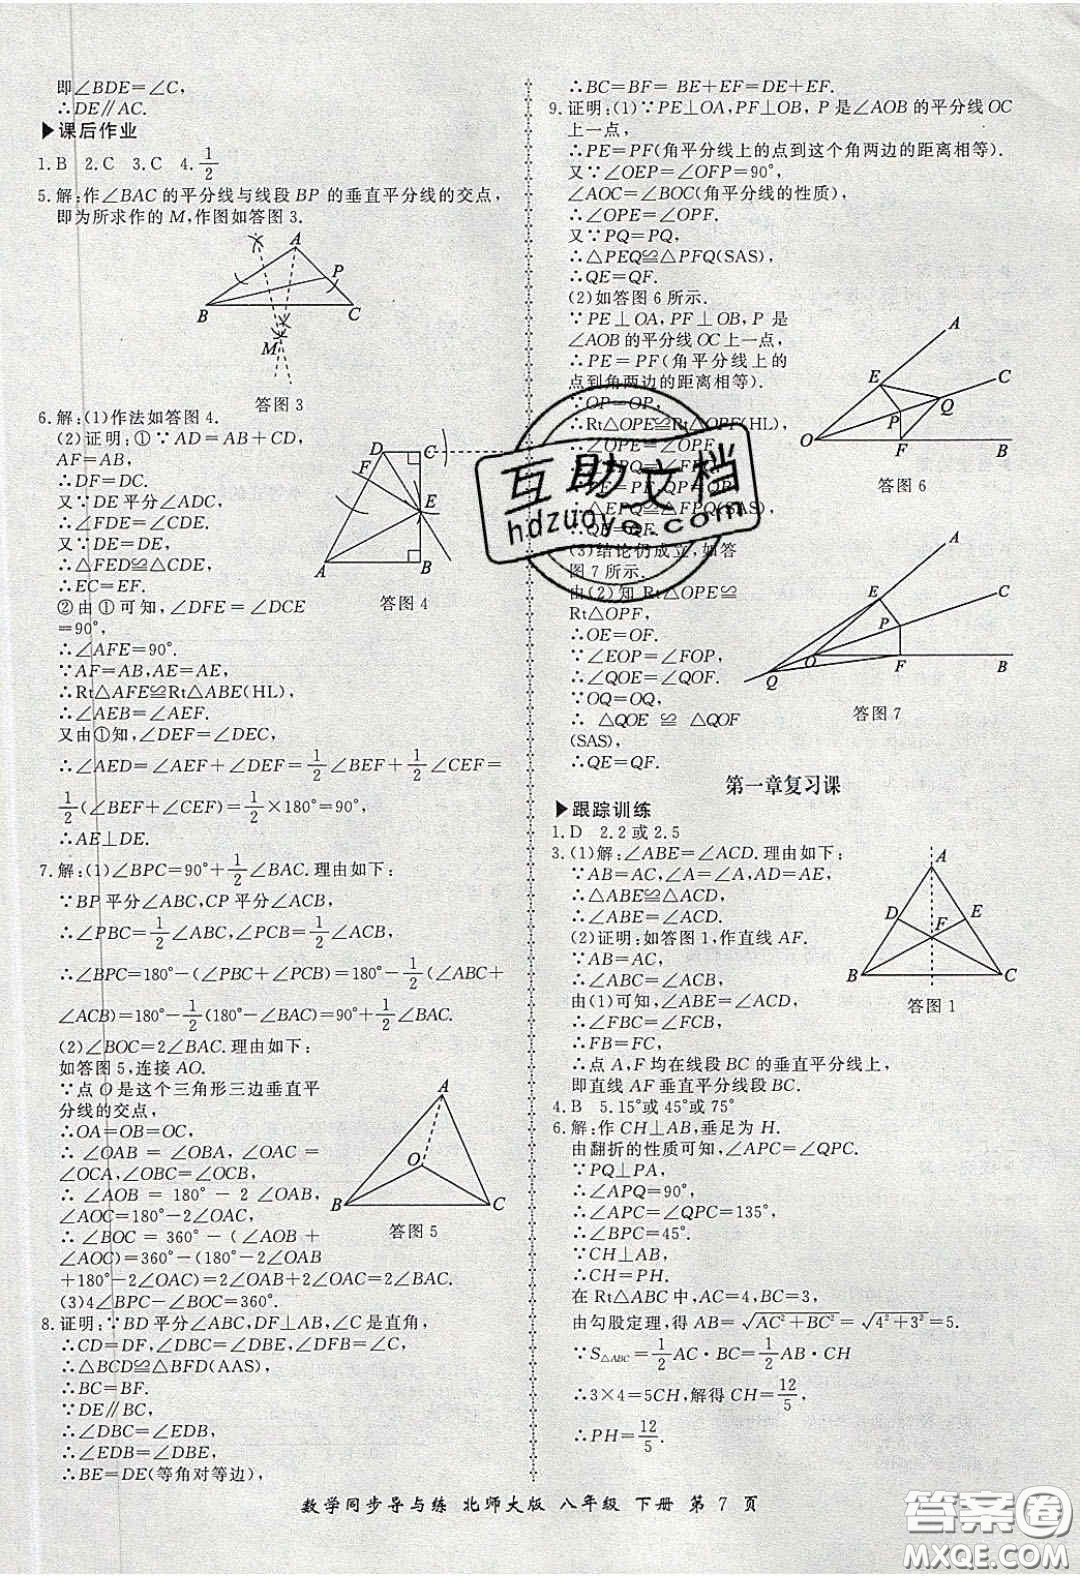 即∠BDE=∠C,
∴DE∥AC.
▶课后作业
1.B 2.C 3.C 4.1/2
5.解:作∠BAC的平分线与线段BP的垂直平分线的交点,
即为所求作的M,作图如答图3.
A
P
B
C
M
答图3
6.解:(1)作法如答图4.
(2)证明:①∵AD=AB+CD,
AF=AB,
∴DF=DC.
又∵DE平分∠ADC,
∴∠FDE=∠CDE.
又∵DE=DE,
∴△FED≌△CDE,
∴EC=EF.
②由①可知,∠DFE=∠DCE
=90°,
∴∠AFE=90°.
∵AF=AB,AE=AE,
∴Rt△AFE≌Rt△ABE(HL),
∴∠AEB=∠AEF.
又由①知,∠DEF=∠DEC,
∴∠AED=∠AEF+∠DEF=1/2∠BEF+1/2∠CEF=
1/2(∠BEF+∠CEF)=1/2×180°=90°,
∴AE⊥DE.
D
C
F
E
A
B
答图4
7.解:(1)∠BPC=90°+1/2∠BAC.理由如下:
∵BP平分∠ABC,CP平分∠ACB,
∴∠PBC=1/2∠ABC,∠PCB=1/2∠ACB,
∴∠BPC=180°-(∠PBC+∠PCB)=180°-1/2(∠ABC+
∠ACB)=180°-1/2(180°-∠BAC)=90°+1/2∠BAC.
(2)∠BOC=2∠BAC.理由如下:
如答图5,连接AO.
∵点O是这个三角形三边垂直平
分线的交点,
∴OA=OB=OC,
∴∠OAB=∠OBA,∠OAC=
∠OCA,∠OBC=∠OCB,
∴∠AOB=180°-2∠OAB,
∠AOC=180°-2∠OAC,
∴∠BOC=360°-(∠AOB+
∠AOC)=360°-(180°-2∠OAB
+180°-2∠OAC)=2∠OAB+2∠OAC=2∠BAC.
(3)4∠BPC-∠BOC=360°.
A
O
B
C
答图5
8.证明:∵BD平分∠ABC,DF⊥AB,∠C是直角,
∴CD=DF,∠DBC=∠DBE,∠DFB=∠C,
∴△BCD≌△BFD(AAS),
∴BC=BF.
∵DE∥BC,
∴∠DBC=∠EDB,
∴∠EDB=∠DBE,
∴BE=DE(等角对等边),
∴BC=BF=BE+EF=DE+EF.
9.证明:(1)∵PE⊥OA,PF⊥OB,P是∠AOB的平分线OC
上一点,
∴PE=PF(角平分线上的点到这个角两边的距离相等).
又∵∠OEP=∠OFP=90°,
∠AOC=∠BOC(角平分线的性质),
∴∠OPE=∠OPF.
又∵PQ=PQ,
∴△PEQ≌△PFQ(SAS),
∴QE=QF.
(2)如答图6所示.
∵PE⊥OA,PF⊥OB,P是
∠AOB的平分线OC上一点,
∴PE=PF(角平分线上的
点到角两边的距离相等).
∵OP=OP,
∴Rt△OPE≌Rt△OPF(HL),
∴∠OPE=∠OPF,
∴∠EPQ=∠FPQ.
∴△EPQ≌△FPQ(SAS),
∴QE=QF.
(3)结论仍成立,如答
图7所示.
由(2)知Rt△OPE≌
Rt△OPF,
∴OE=OF.
∵∠EOP=∠FOP,
∴∠QOE=∠QOF.
∵OQ=OQ,
∴△QOE≌△QOF
(SAS),
∴QE=QF.
A
E
C
Q
P
O
F
B
答图6
A
E
C
P
O
F
B
Q
答图7
第一章复习课
▶跟踪训练
1.D 2.2或2.5
3.(1)解:∠ABE=∠ACD.理由如下:
∵AB=AC,∠A=∠A,AD=AE,
∴△ABE≌△ACD,
∴∠ABE=∠ACD.
(2)证明:如答图1,作直线AF.
∵AB=AC,
∴∠ABC=∠ACB.
由(1)可知,∠ABE=∠ACD,
∴∠FBC=∠FCB,
∴FB=FC.
∴点A,F均在线段BC的垂直平分线上,
即直线AF垂直平分线段BC.
A
D
E
F
B
C
答图1
4.B 5.15°或45°或75°
6.解:作CH⊥AB,垂足为H.
由翻折的性质可知,∠APC=∠QPC.
∵PQ⊥PA,
∴∠APQ=90°,
∴∠APC=∠QPC=135°,
∴∠BPC=45°.
∵CH⊥AB,
∴CH=PH.
在Rt△ABC中,AC=4,BC=3,
由勾股定理,得AB=√(AC²+BC²)=√(4²+3²)=5.
∵S△ABC=1/2AC·BC=1/2AB·CH
∴3×4=5CH,解得CH=12/5,
∴PH=12/5.
数学同步导与练 北师大版 八年级 下册 第 7 页
互助文档
hdzuoye.com
答案圈
MXQE.COM